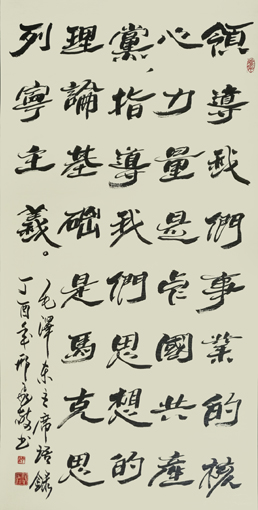 領導我們事業的核
心力量是中國共產
黨，指導我們思想的
理論基礎是馬克思
列寧主義。
毛澤東主席語錄
丁酉年邢書